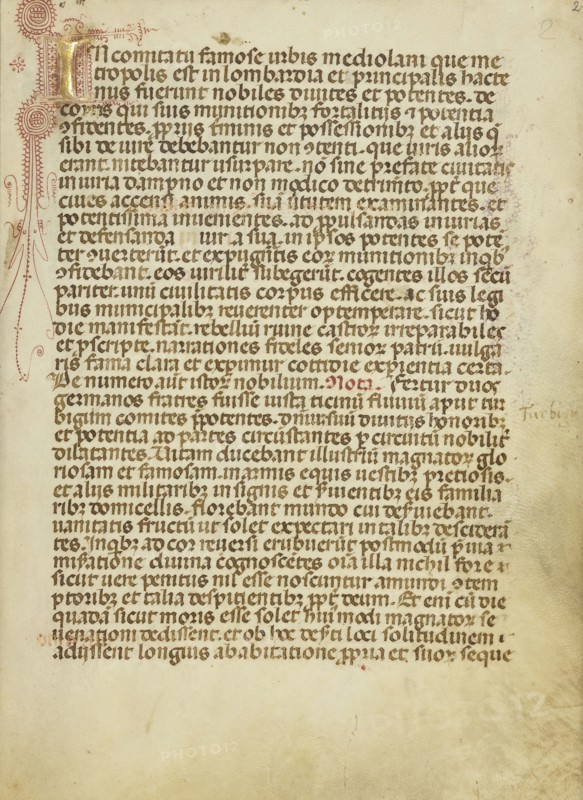 2
IN comitatu famose urbis mediolani que me
tropolis est in lombardia et principalis hacte
nus fuerunt nobiles diuites et potentes. de
coris qui suis munitionibꝫ fortalitijs ⁊ potentia
ꝯfidentes. ꝓprijs t̃minis et possessionibꝫ et alijs q̃
sibi de iure debebantur non ꝯtenti. que iuris alioꝝ
erant. nitebantur usurpare. nõ sine prefate ciuitatis
iniuria dampno et non modico detrim̃to. ꝓpt̃ que
ciues accensi animis. suã uirtutem examinantes. et
potentissimã inuenientes. ad ꝓpulsandas iniurias
et defensanda iura sua. in ip̃os potentes se potẽ
ter ꝯuerterũt. et expugnatis eoꝝ munitionibꝫ in qbꝫ
ꝯfidebant. eos uirilit̃ subegerũt. cogentes illos secũ
pariter. unũ ciuilitatis corpus efficere. ac suis legi
bus municipalibꝫ reuerenter optemperare. sicut ho
die manifestãt. rebelliũ ruine castroꝝ irreparabiles
et ꝓscripte. narrationes fideles senioꝝ patrũ. uulga
ris fama clara et exprimit̃ cottidie exp̃ientia certa.
De numero aũt istoꝝ nobilium. Nota. Fertur duos
germanos fratres fuisse iuxta ticinũ fluuiũ aput tur
bigum comites p̃potentes. diuitijs honoribꝫ
et potentia ad partes circũstantes ꝑ circuitũ nobilit̃
dilatantes. Uitam ducebant illustriũ magnatoꝝ glo
riosam et famosam. in armis equis uestibꝫ pretiosis.
et alijs militaribꝫ insignis et s̃uientibꝫ eis familia
ribꝫ domicellis. florebant mundo cui des̃uiebant.
uanitatis fructũ ut solet expectari in talibꝫ desiderã
tes. Inqbꝫ ad cor reuersi erubuerũt postmodũ
miseratione diuina cognoscẽtes oĩa illa nichil fore
sicut uere penitus nil esse noscuntur amatori ꝯtem
ptoribꝫ et talia despitientibꝫ ꝓpt̃ deum. Et enĩ cũ die
quadã sicut moris esse solet hui modi magnatoꝝ se
uenationi dedissent. et ob hoc des̃ti loci solitudinem
adijssent longius ab abitatione ꝓpria et suoꝝ seque
Turbigu
PHOTO12
PHOTO12